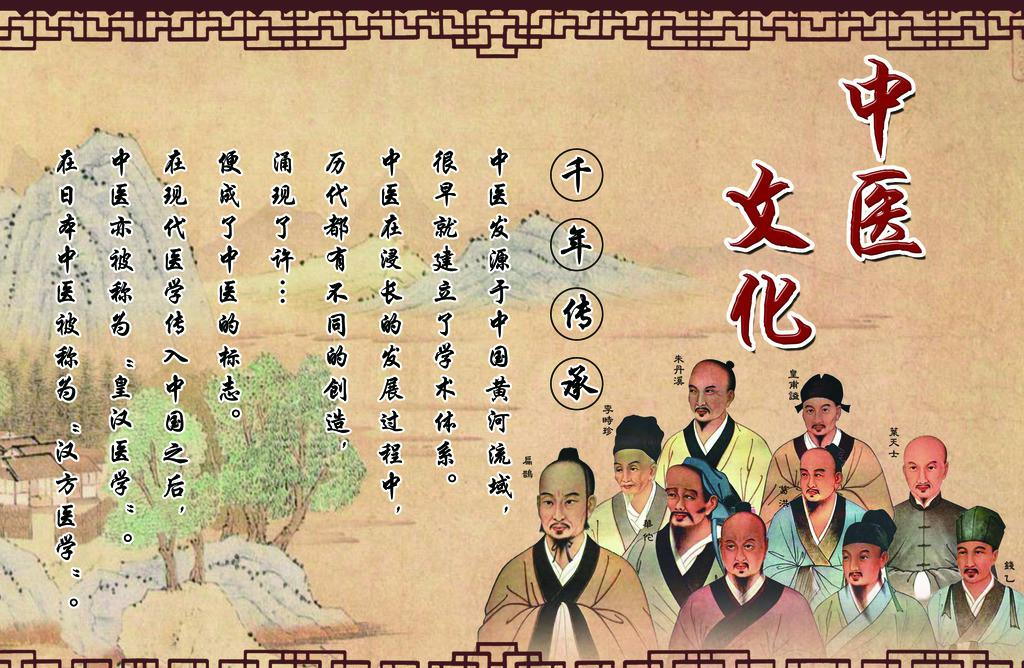 中医
文化
千年传承
中医发源于中国黄河流域，
很早就建立了学术体系。
中医在浸长的发展过程中，
历代都有不同的创造，
涌现了许…
便成了中医的标志。
在现代医学传入中国之后，
中医亦被称为“皇汉医学”。
在日本中医被称为“汉方医学”。
朱丹溪
皇甫謐
李時珍
葉天士
扁鵲
葛洪
華佗
錢乙